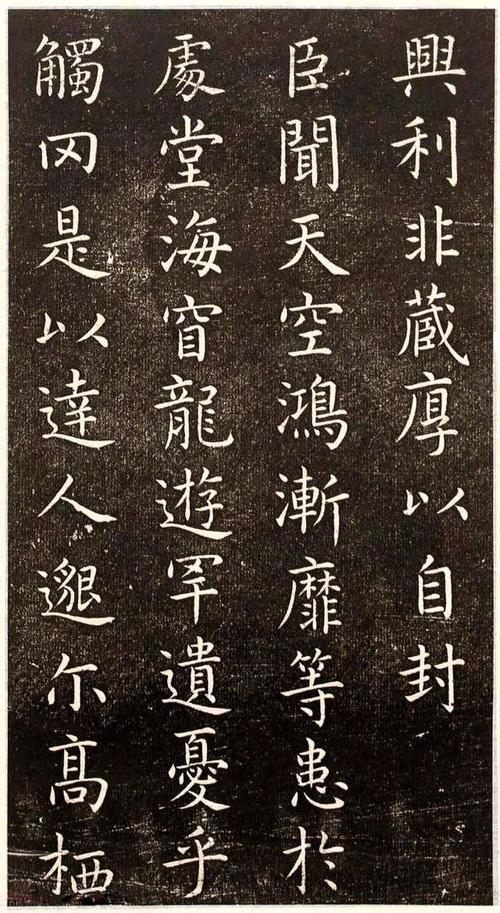 興利非蔵厚以自封
臣聞天空鴻漸靡等患於
處堂海窅龍遊罕遺憂乎
觸罔是以達人邈尒高栖